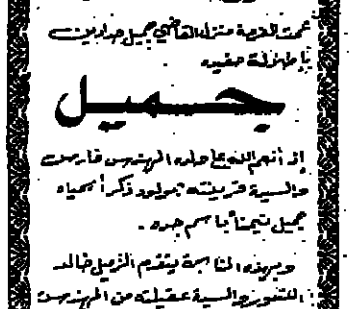 عمت الفرحة منزل القاضي جميل حدادين
بإطلالة حفيده
جميل
إذ أنعم الله على ولده المهندس فارس
والسيدة قرينته بمولود ذكر أسمياه
جميل تيمناً باسم جده .
وبهذه المناسبة يتقدم الزميل خالد
والسيدة عقيلته من المهندس